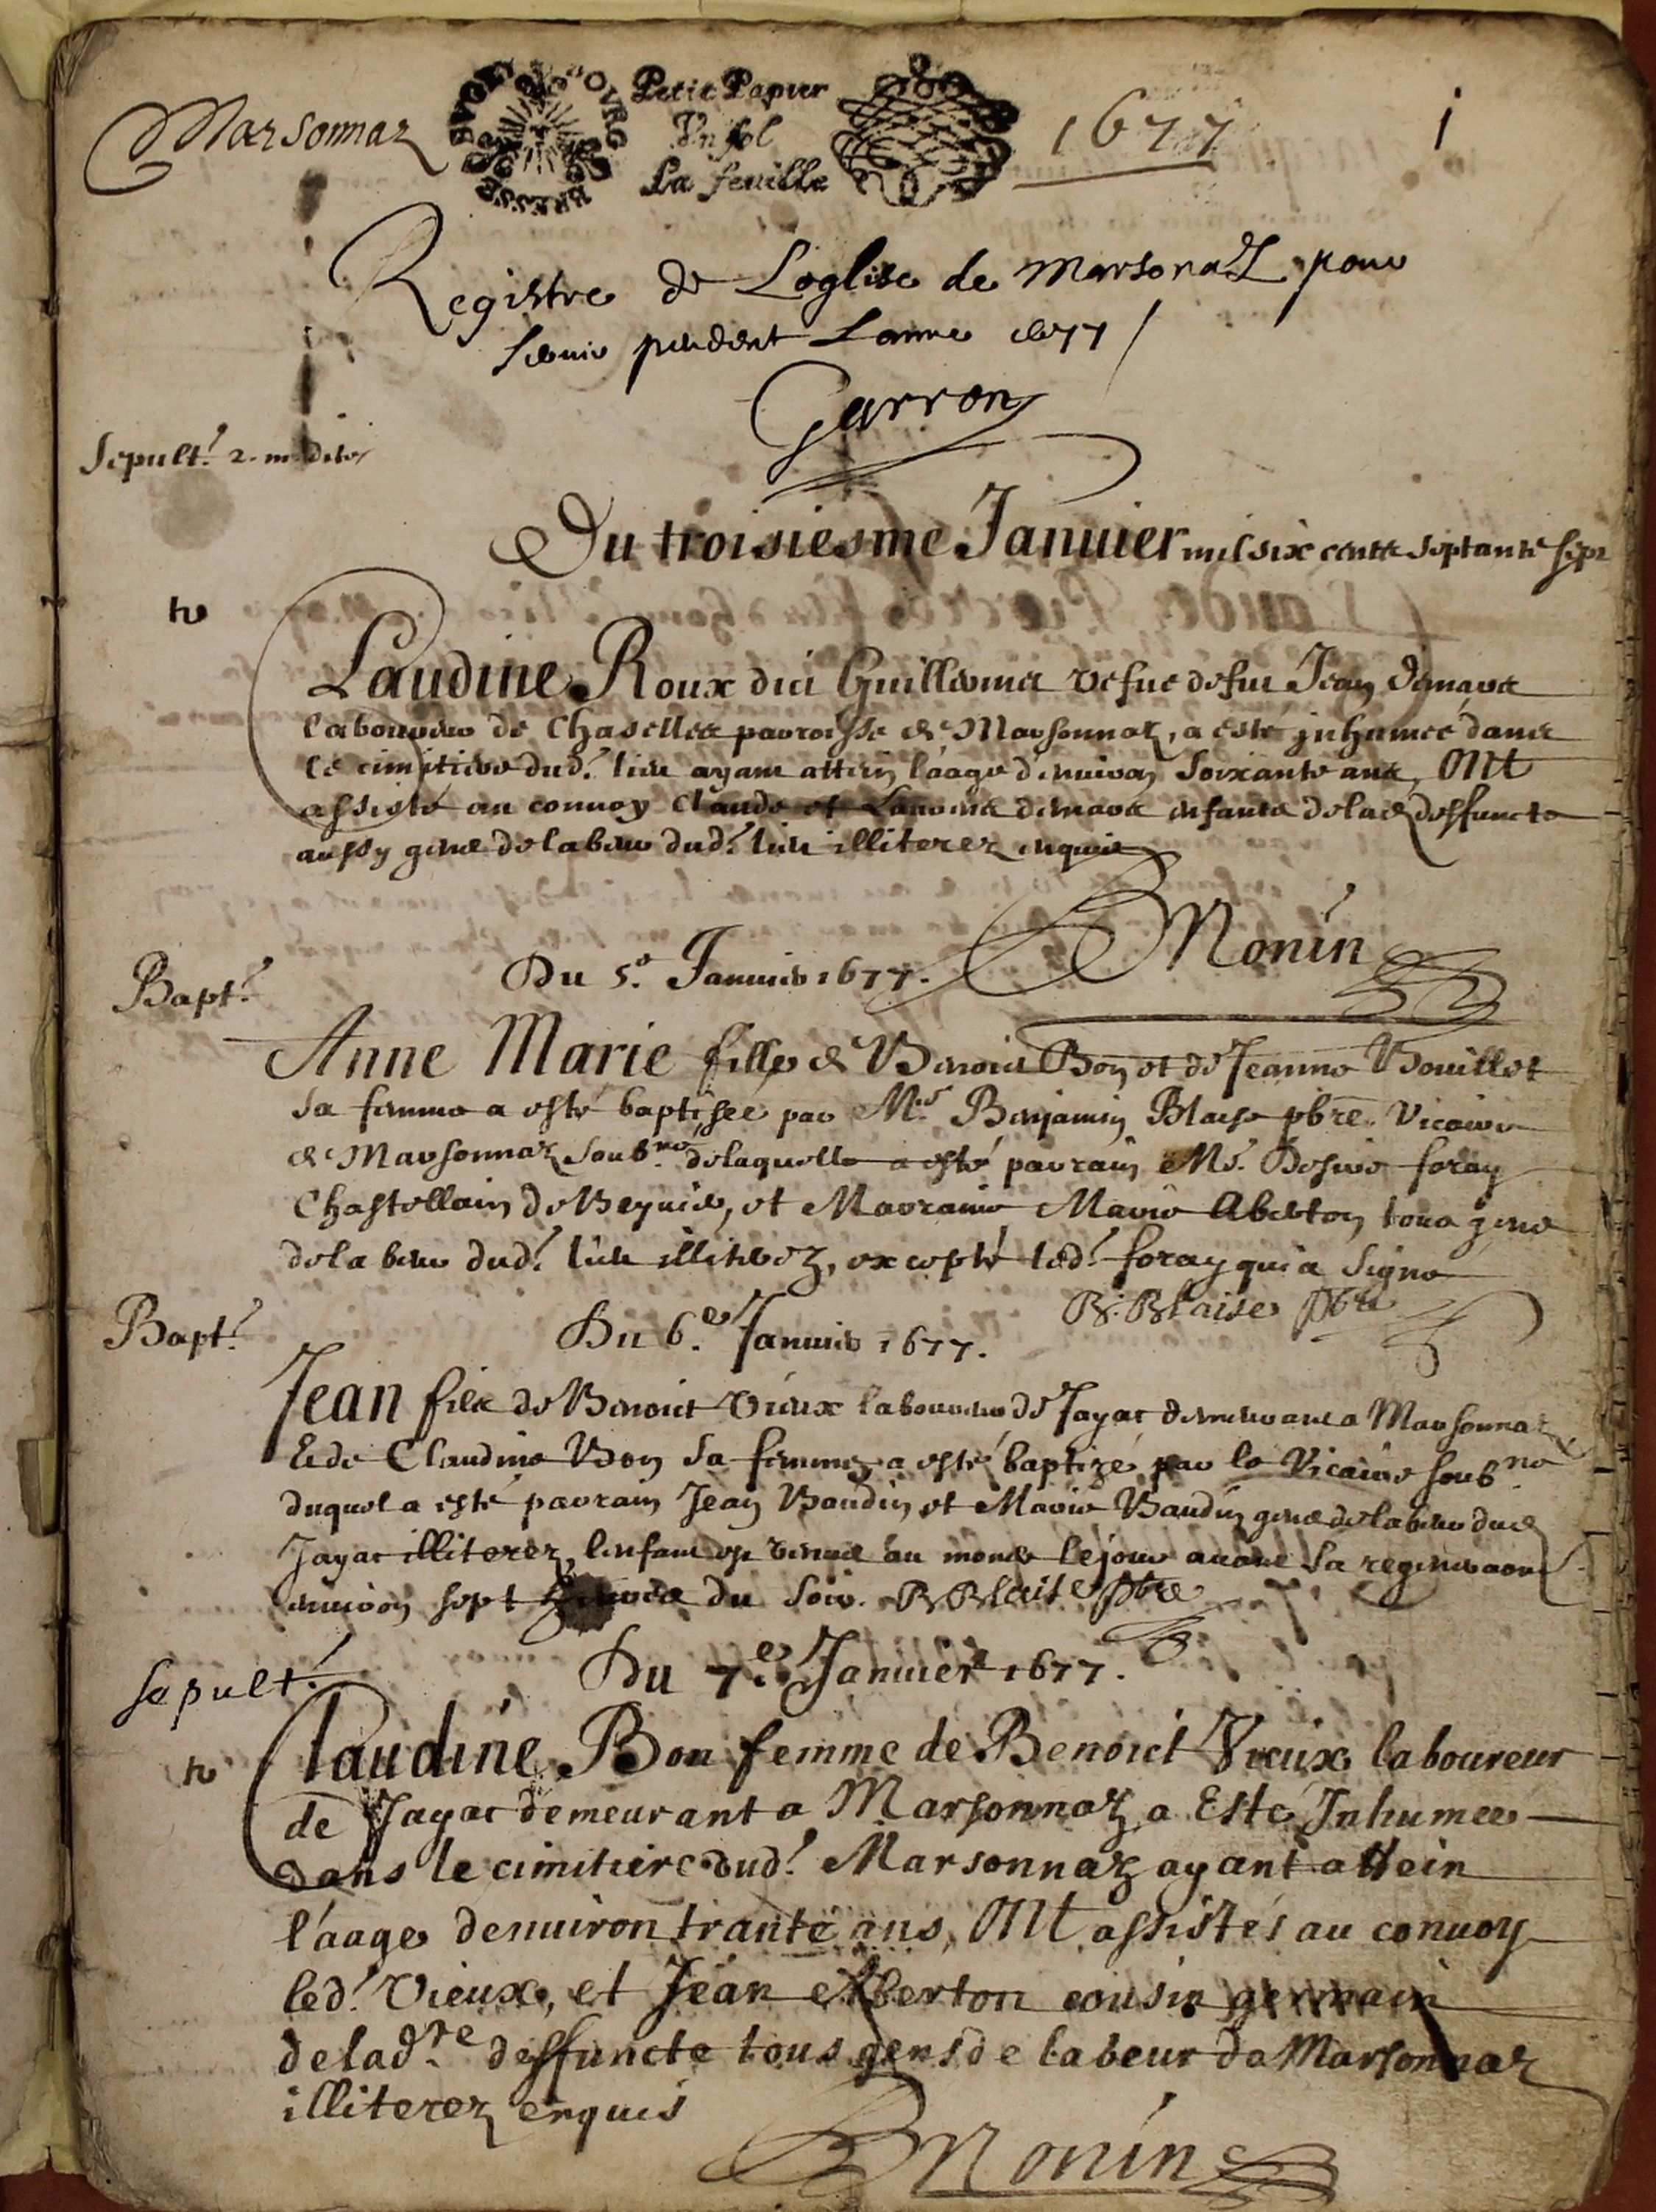 Marsonnaz
Petit Papier
Un sol
La feuille
1677
1
Registre de Leglise de Marsonaz pour
servir pendent Lanne 1677
Garron
Sepult.
Du troisiesme Januier mil six cents septante sept
Claudine Roux dici Guillermet vefue de fut Jean
laboureur de Chaselles parroisse de Marsonnaz, a esté inhumée dans
le cimitiere dud.t lieu ayant attein l'aage d'enuiron soixante ans, Ont
assisté au conuoy Claude et enfants de lad. deffuncte
aussy gens de labeur dud.t lieu illiterez enquis
Monin
Bapt.
Du 5.e Januier 1677.
Anne Marie fille de Benoict Bon et de Jeanne Bouillet
sa femme a esté baptisée par M.re Benjamin Blaise pbre. Vicaire
de Marsonnaz soub.né delaquelle a esté parrain Me. Desire foray
Chastellain de Beyuier, et Marraine Marie Aberton tous gens
de labeur dud.t lieu illiterez, excepté led.t foray qui a signe
B. Blaise pbre
Bapt.
Du 6.e Januier 1677.
Jean fils de Benoict Vieux laboureur de Jayac demeurant a Marsonnaz
Et de Claudine Bon sa femme, a esté baptizé par le Vicaire soub.né
duquel a esté parrain Jean Baudin et Marie Baudin gens de labeur dud
Jayac illiterez, lenfant est venue au monde le jour auant sa
enuiron sept heures du soir. B Blaise pbre
Sepult.
Du 7.e Januier 1677.
Claudine Bon femme de Benoict Vieux laboureur
de Jayac demeurant a Marsonnaz a Esté Inhumee
dans le cimitiere dud.t Marsonnaz ayant attein
l'aage denuiron trante ans, Ont assistés au conuoy
led.t Vieux, et Jean Aberton cousin germain
de lad.te deffuncte tous gens de labeur de Marsonnaz
illiterez enquis
Monin